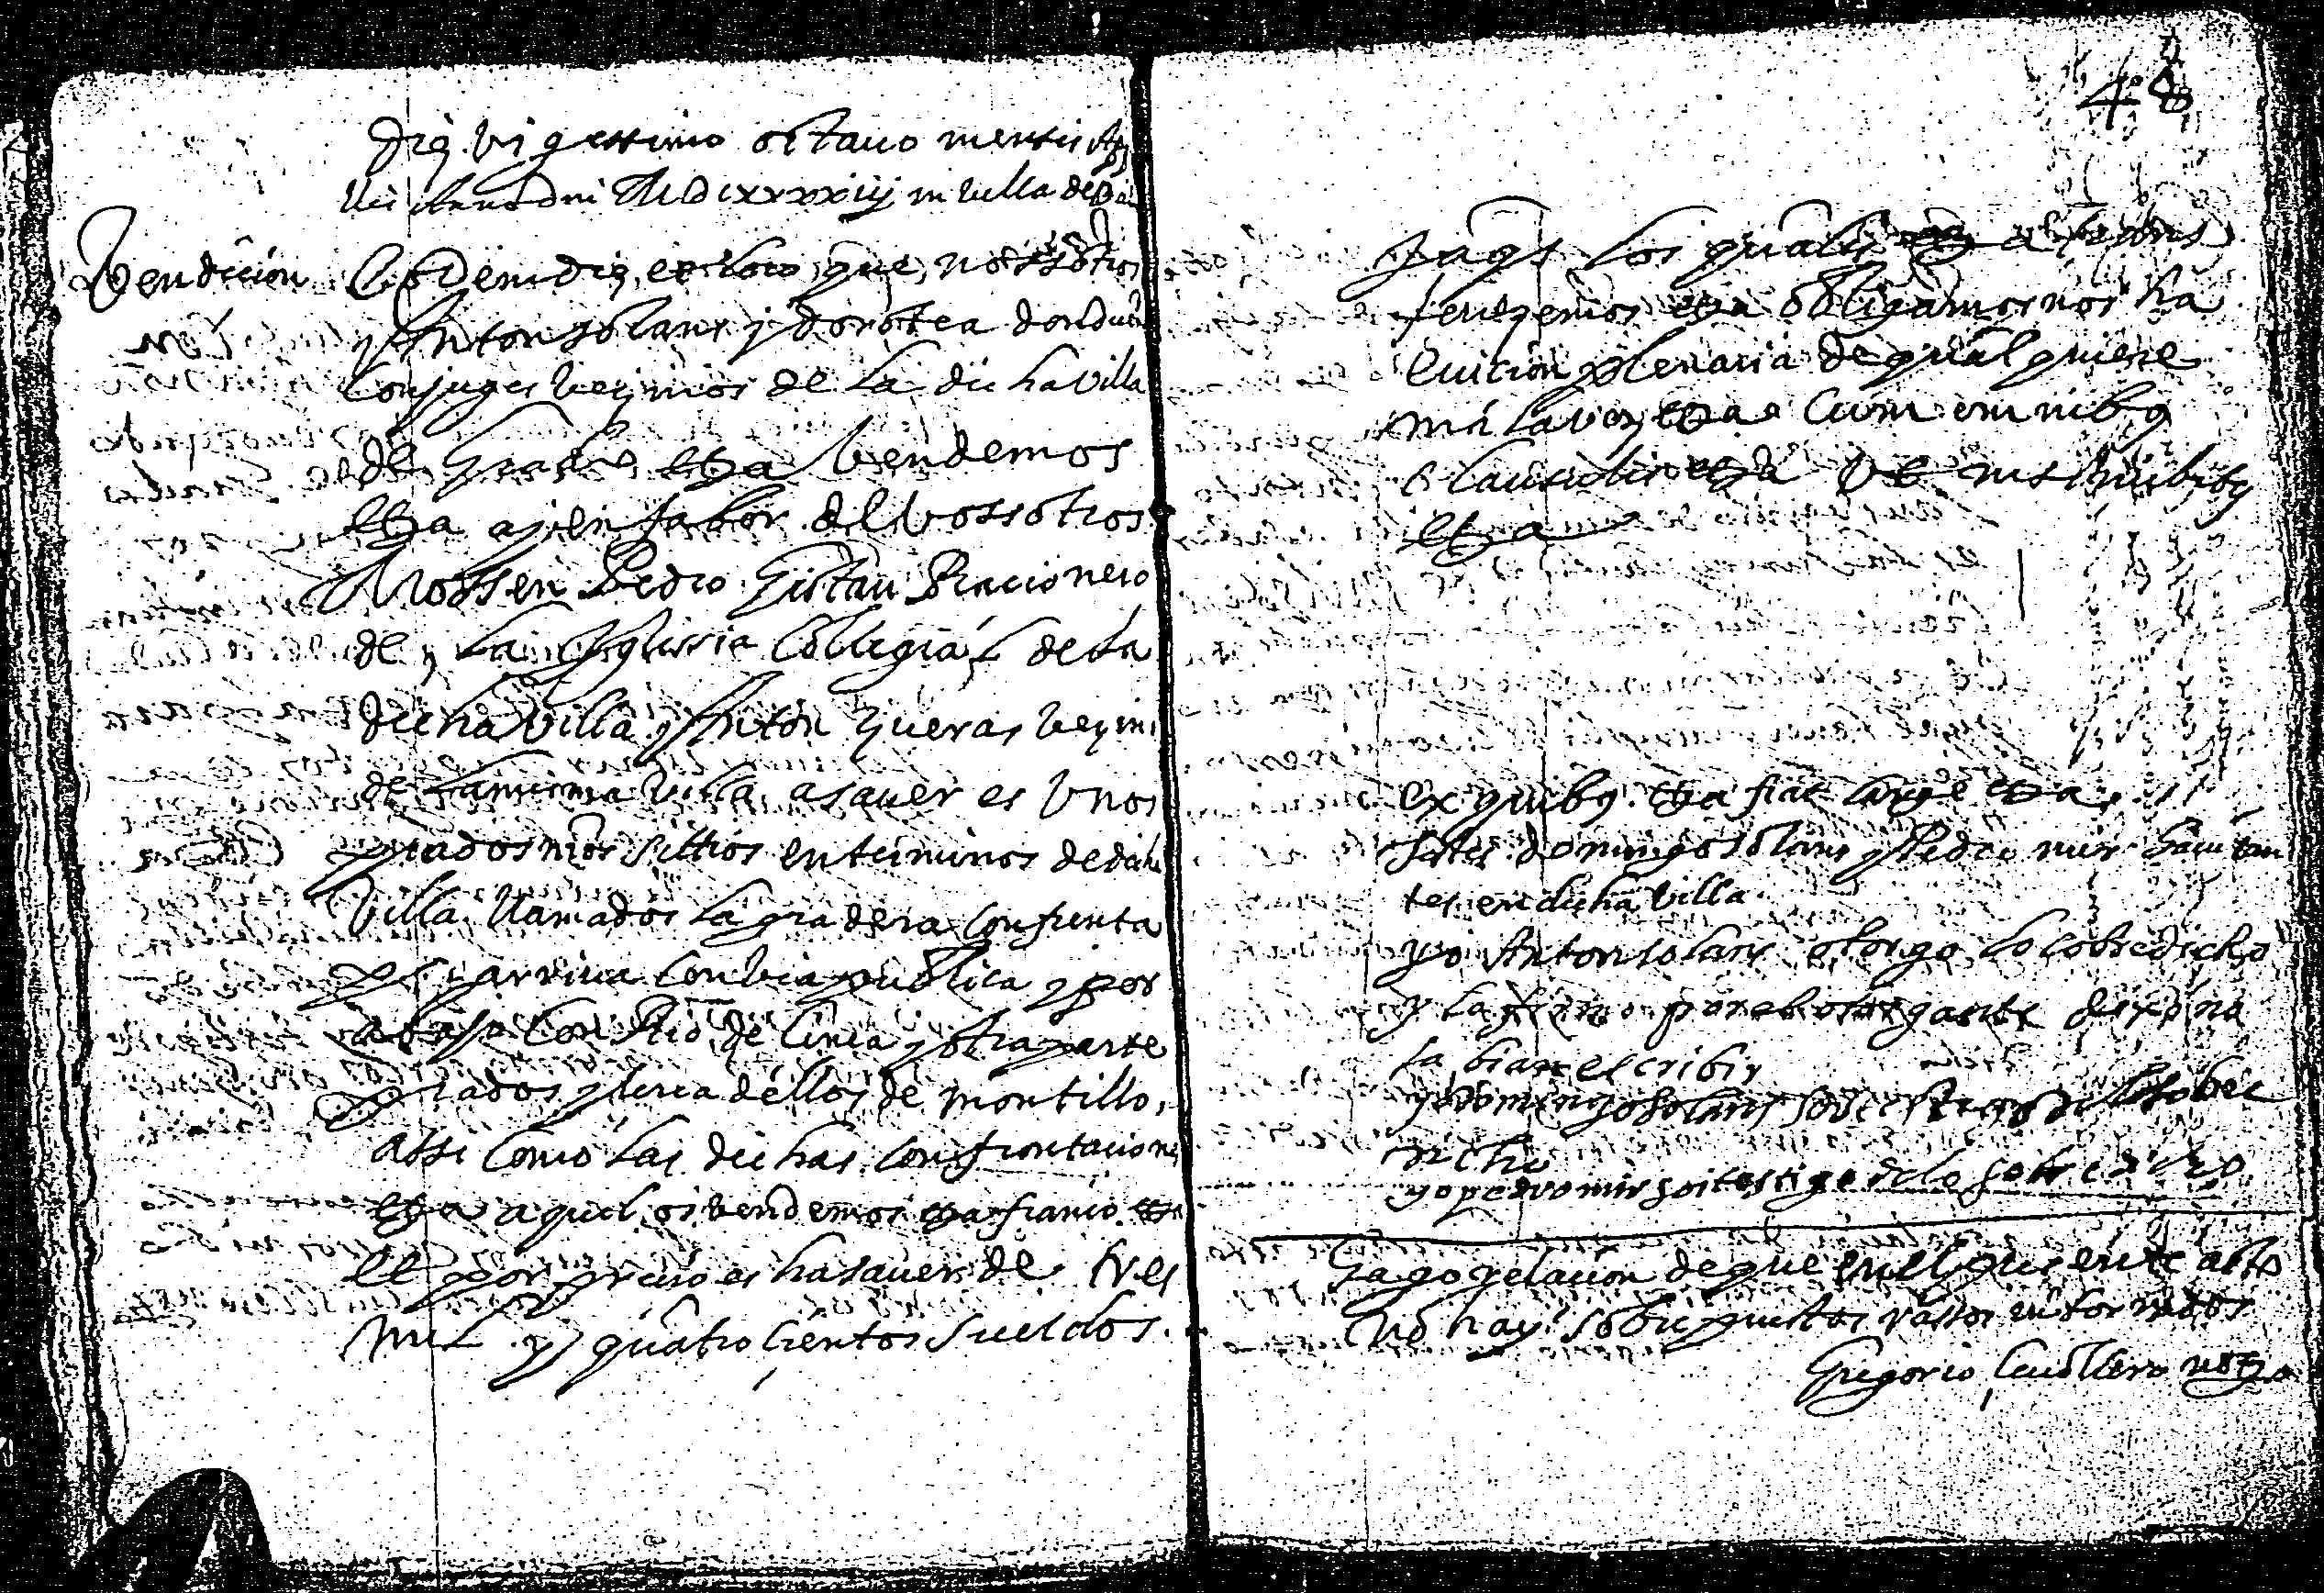 Die vigessimo octavo mensis Ap
Vendicion
Eodem die et loco que nossotros
y Anton Solans y dorotea
Conjuges vezinos de la dicha villa
de Grado etza vendemos
etza ajenfabor del vossotros
Mossen Pedro Gistau Racionero
de la Yglissia Collegial de la
dicha villa y Anton zueras vezin
de la misma villa asaver es unos
prados nros sittios en terminos de dcha
villa llamados la pradera Confrenta
por arriva con via publica y por
abaxo con Rio de Cinca y otra parte
prados y leria dellos de montillo,
assi como las dichas confrontaciones
etza aquel os vendemos etza franco etza
et por precio es hasaver de tres
mil y quatrocientos sueldos.
48
Jaqs los quales etza
etza obligamosnos ha
evicion plenaria de qualquiere
mala voz etza Cum omnibq
Clausulis etza
etza
ex quibq etza fiat large etza
testes domingo Solans y Pedro mir havitan
tes en dicha villa
yo Anton solans otorgo lo sobredicho
y la firmo por la otorgante dixo no
sabian escribir
y domingo Solans soi testigo de lo sobre
dicho
yo pedro mir soi testigo de lo sobredicho
Hago relacion de que en el presente acto
No hay sobrepuestos rassos
Gregorio